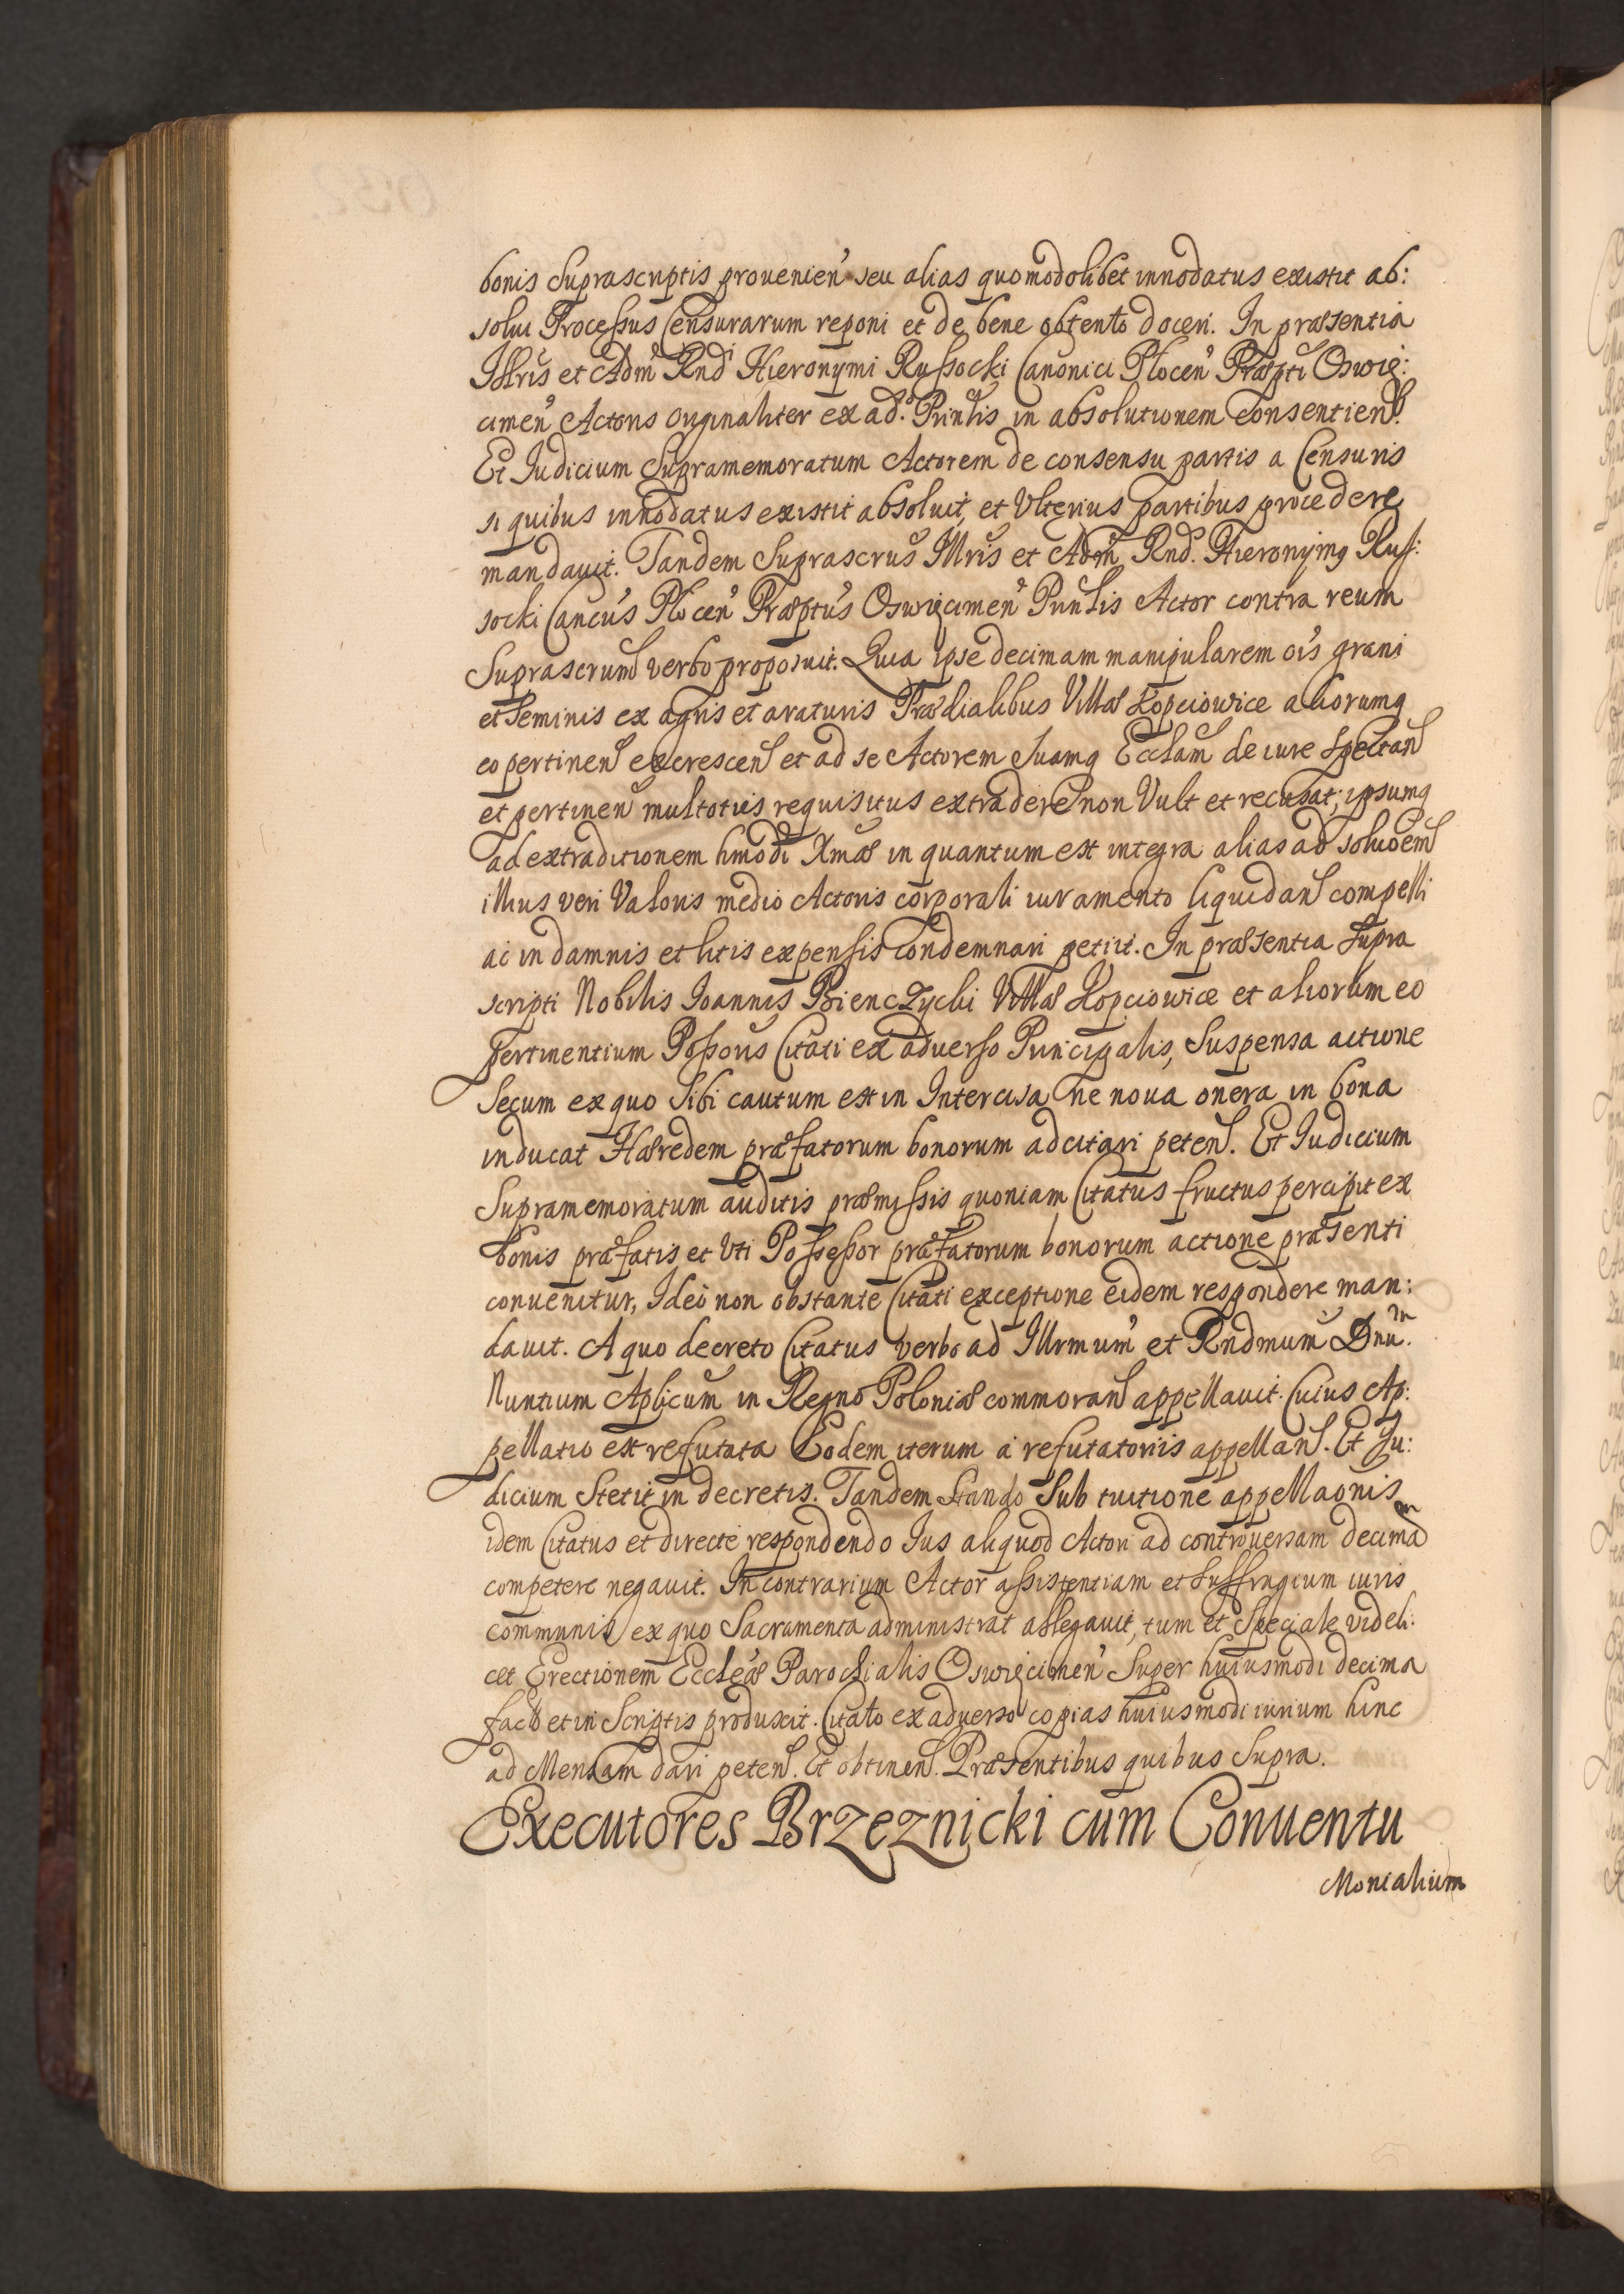 bonis Suprascriptis provenien' seu alias quomodolibet innodatus existit ab:
solui Processus Censurarum reponi et de bene obtento doceri. In præsentia
Illris et Adm' Rnd' Hieronymi Russocki Canonici Plocen' Præpti Oswię:
cimen' Actoris originaliter ex ad.° Prinlis in absolutionem consentien.
Et Iudicium Supramemoratum Actorem de consensu partis a Censuris
si quibus innodatus existit absoluit, et Ulterius partibus procedere
mandauit. Tandem Suprascrus Illris et Adm' Rnd. Hieronymq Rus:
socki Cancus Plocen' Præptus Oswięcimen' Prinlis Actor contra reum
Suprascrum verbo proposuit. Quia ipse decimam manipularem ois grani
et Seminis ex agris et araturis Prædialibus Villæ Łopciowice aliorumq
eo pertinen excrescen et ad se Actorem Suamq Ecclam de iure Spectan
et pertinen multoties requisitus extradere non Vult et recusat; ipsumq
ad extraditionem hmodi Xmæ in quantum est integra alias ad soluoem
illius veri Valoris medio Actoris corporali iuramento liquidan compelli
ac in damnis et litis expensis condemnari petiit. In præsentia Supra
scripti Nobilis Ioannis Bienczycki Villæ Łopciowice et aliorum eo
pertinentium Possoris Citati ex aduerso Principalis, Suspensa actione
Secum ex quo Sibi cautum est in Intercisa ne noua onera in bona
inducat Hæredem præfatorum bonorum adcitari peten. Et Iudicium
Supramemoratum auditis præmissis quoniam Citatus fructus percipit ex
bonis præfatis et Uti Possessor præfatorum bonorum actione præsenti
conuenitur, Ideo non obstante Citati exceptione eidem respondere man:
dauit. A quo decreto Citatus verbo ad Illrmum' et Rndmum Dnu.m
Nuntium Aplicum in Regno Poloniæ commoran appellauit. Cuius Ap:
pellatio est refutata Eodem iterum a refutatoriis appellan. Et Iu:
dicium Stetit in decretis. Tandem Stando Sub tuitione appellaonis
idem Citatus et directe respondendo Ius aliquod Actori ad controuersam decimam
competere negauit. In contrarium Actor assistentiam et Suffragium iuris
communis ex quo Sacramenta administrat allegauit, tum et Speciale videli:
cet Erectionem Eccleæ Parochialis Oswięcimen' Super huiusmodi decima
facto et in Scriptis produxit. Citato ex aduerso copias huiusmodi iurium hinc
ad Mensam dari peten. Et obtinen. Præsentibus quibus Supra.
Executores Brzeznicki cum Conuentu
Monialium